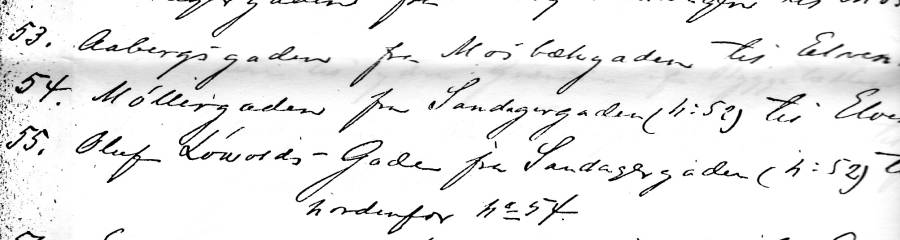 53. Aabergsgaden fra Mosbækgaden til Elven
54. Möllergaden fra Sandagergaden (N: 52) til Elve
55. Oluf Löwolds-Gaden fra Sandagergaden (N: 52) t
nordenfor No 54.